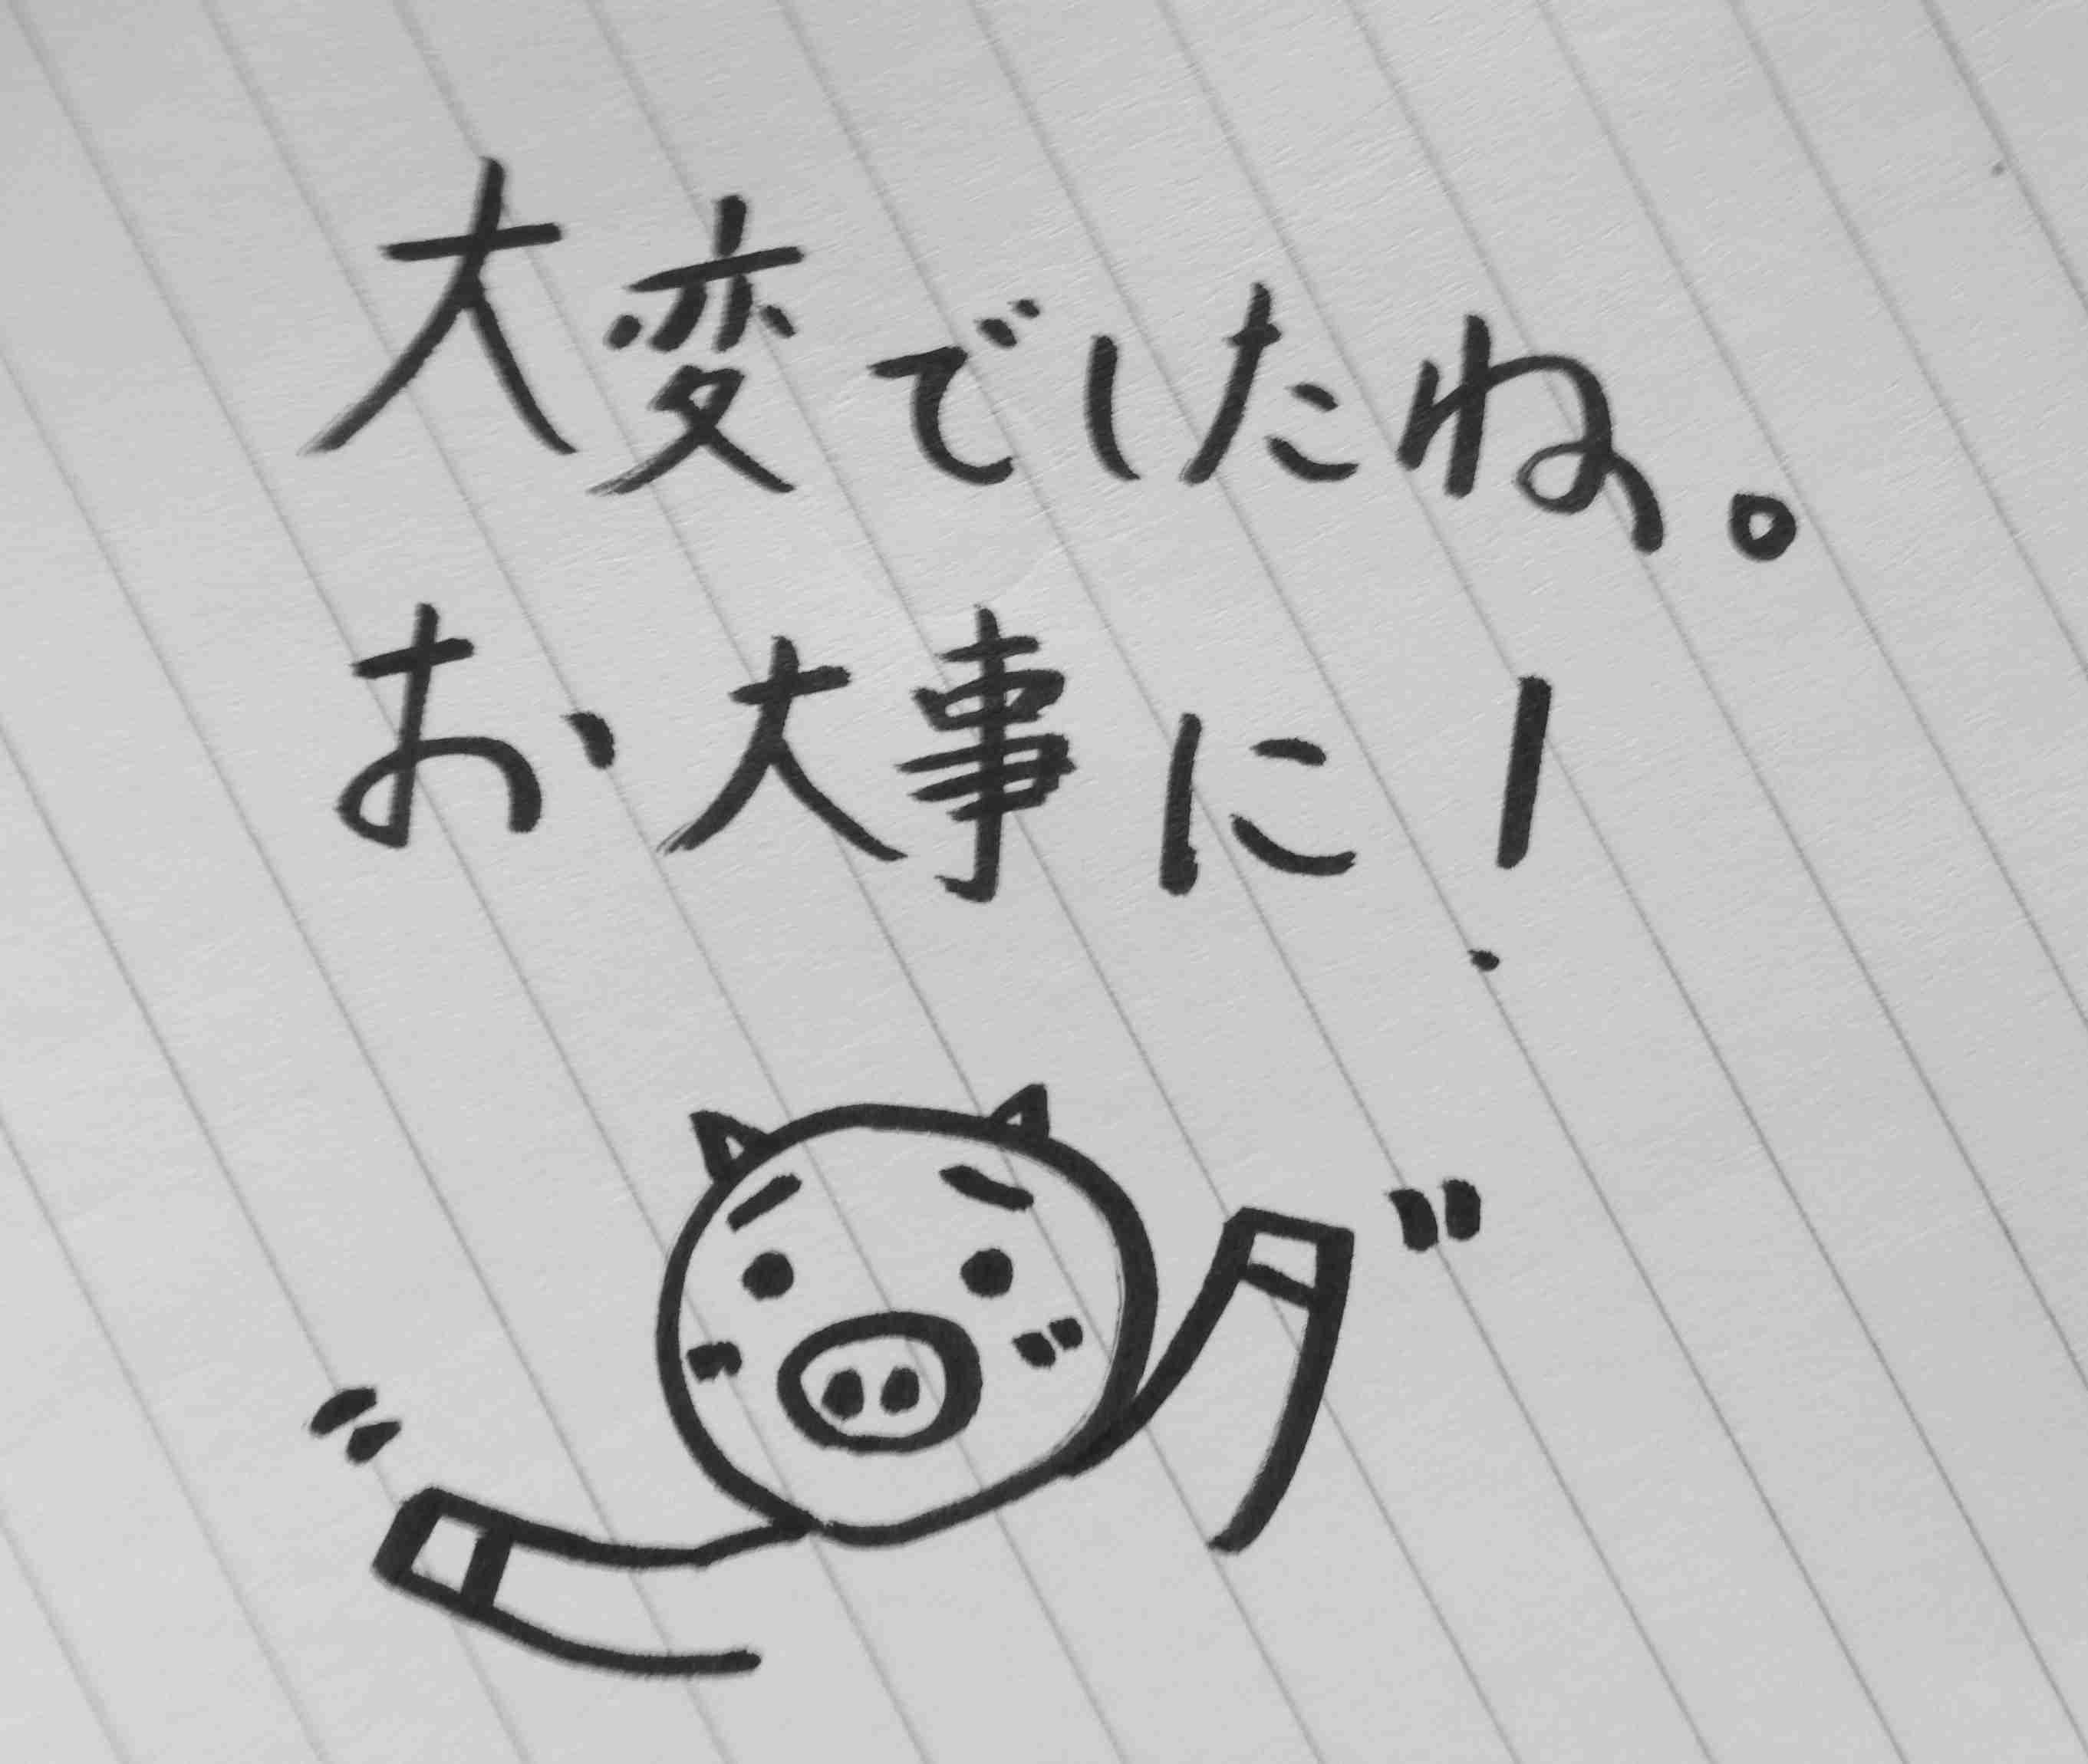 大変でしたね。
お大事に!